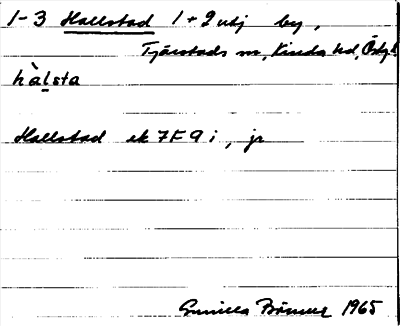 1-3 Hallstad 1+2 utj by,
Tjärstads sn, Kinda hd, Östgl.
hàlsta
Hallstad ek 7F9i, jr
Gunilla 1965